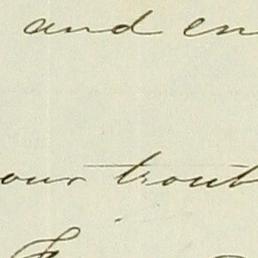 and en
our troub